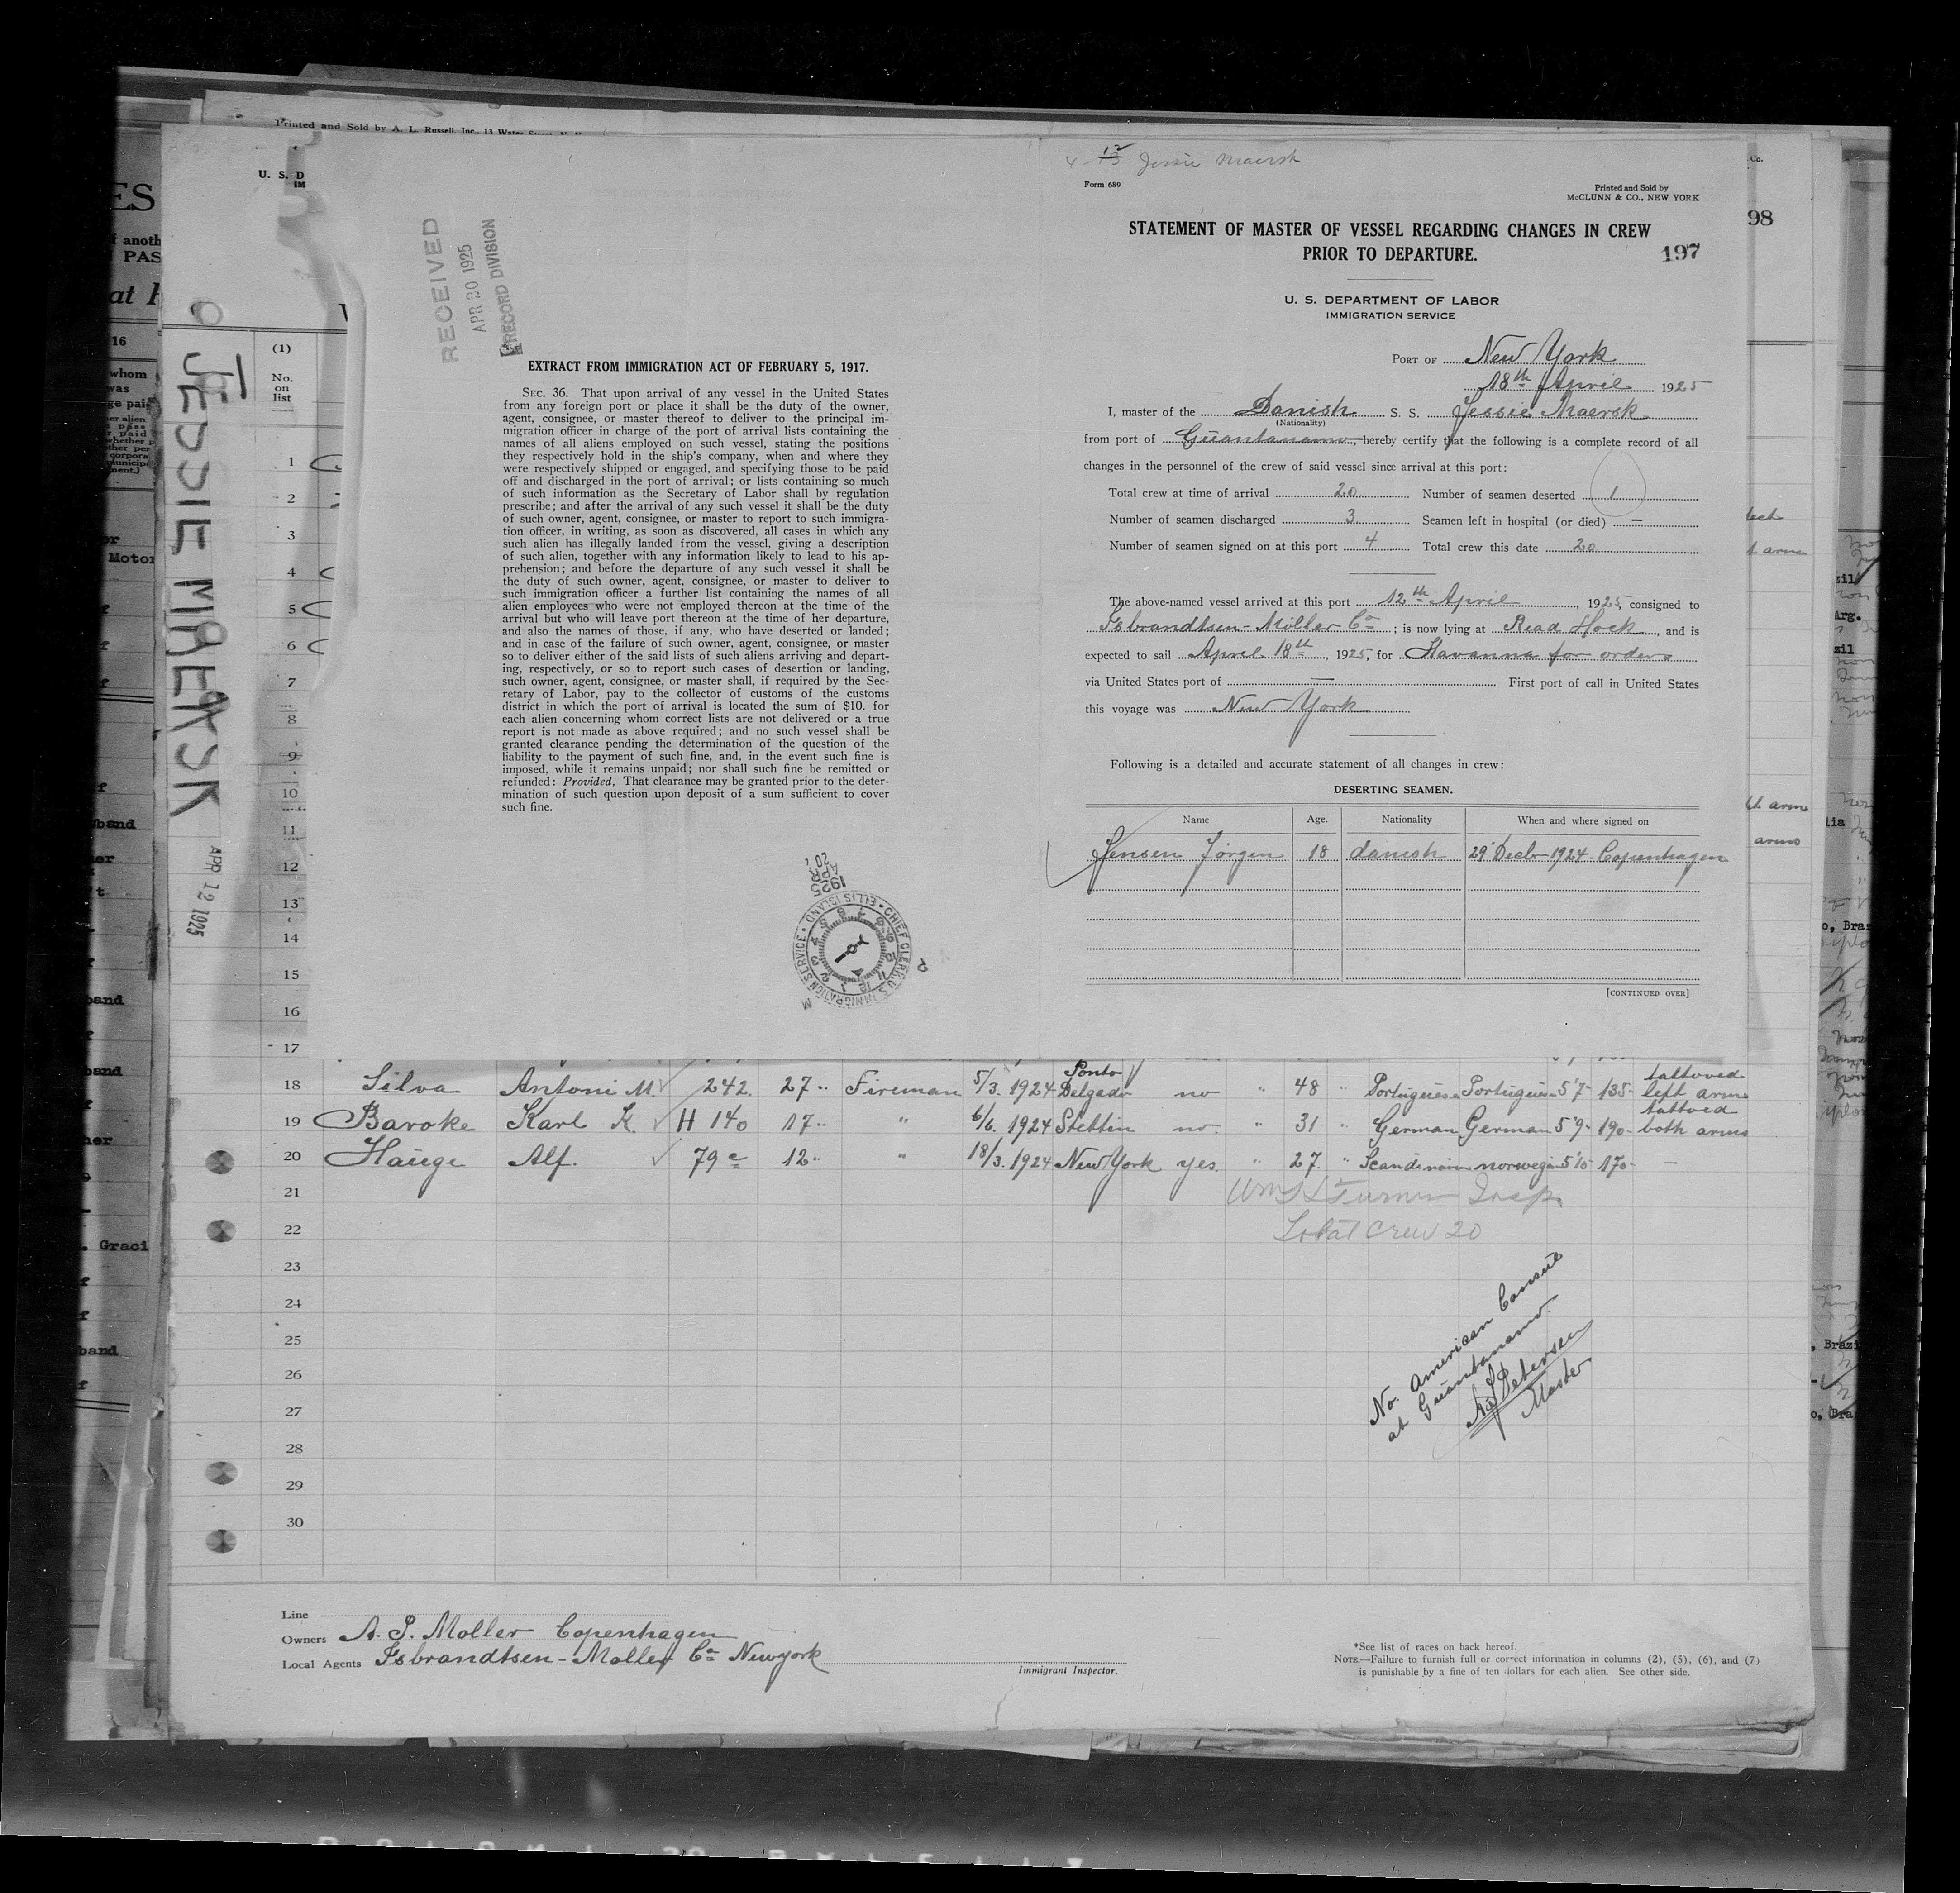 Printed and Sold by A. L. Russell, Inc., 13 Water
U. S. D
IM
(1)
No.
on
list
JESSIE MAERSK
APR 12 1925
RECEIVED
APR 20 1925
RECORD DIVISION
EXTRACT FROM IMMIGRATION ACT OF FEBRUARY 5, 1917.
SEC. 36. That upon arrival of any vessel in the United States
from any foreign port or place it shall be the duty of the owner,
agent, consignee, or master thereof to deliver to the principal im-
migration officer in charge of the port of arrival lists containing the
names of all aliens employed on such vessel, stating the positions
they respectively hold in the ship's company, when and where they
were respectively shipped or engaged, and specifying those to be paid
off and discharged in the port of arrival; or lists containing so much
of such information as the Secretary of Labor shall by regulation
prescribe; and after the arrival of any such vessel it shall be the duty
of such owner, agent, consignee, or master to report to such immigra-
tion officer, in writing, as soon as discovered, all cases in which any
such alien has illegally landed from the vessel, giving a description
of such alien, together with any information likely to lead to his ap-
prehension; and before the departure of any such vessel it shall be
the duty of such owner, agent, consignee, or master to deliver to
such immigration officer a further list containing the names of all
alien employees who were not employed thereon at the time of the
arrival but who will leave port thereon at the time of her departure,
and also the names of those, if any, who have deserted or landed;
and in case of the failure of such owner, agent, consignee, or master
so to deliver either of the said lists of such aliens arriving and depart-
ing, respectively, or so to report such cases of desertion or landing,
such owner, agent, consignee, or master shall, if required by the Sec-
retary of Labor, pay to the collector of customs of the customs
district in which the port of arrival is located the sum of $10. for
each alien concerning whom correct lists are not delivered or a true
report is not made as above required; and no such vessel shall be
granted clearance pending the determination of the question of the
liability to the payment of such fine, and, in the event such fine is
imposed, while it remains unpaid; nor shall such fine be remitted or
refunded: Provided, That clearance may be granted prior to the deter-
mination of such question upon deposit of a sum sufficient to cover
such fine.
CHIEF CLERK U.S. IMMIGRATION SERVICE • ELLIS ISLAND •
Jessie Maersk
Form 689
Printed and Sold by
McCLUNN & CO., NEW YORK
STATEMENT OF MASTER OF VESSEL REGARDING CHANGES IN CREW
PRIOR TO DEPARTURE.
197
98
U. S. DEPARTMENT OF LABOR
IMMIGRATION SERVICE
PORT OF New York
18th April 1925
I, master of the Danish S. S. Jessie Maersk
(Nationality)
from port of Guantanamo, hereby certify that the following is a complete record of all
changes in the personnel of the crew of said vessel since arrival at this port:
Total crew at time of arrival 20 Number of seamen deserted 1
Number of seamen discharged 3 Seamen left in hospital (or died) —
Number of seamen signed on at this port 4 Total crew this date 20
The above-named vessel arrived at this port 12th April, 1925, consigned to
Isbrandtsen-Möller Co; is now lying at Read Hock, and is
expected to sail April 18th, 1925, for Havanna for orders
via United States port of — First port of call in United States
this voyage was New York
Following is a detailed and accurate statement of all changes in crew:
DESERTING SEAMEN.
Name Age. Nationality When and where signed on
Jensen Jörgen 18 danish 29 Decb 1924 Copenhagen
[CONTINUED OVER]
1
2
3
4
5
6
7
8
9
10
11
12
13
14
15
16
17
18 Silva Antoni M. 242. 27 Fireman 5/3. 1924 Ponto Delgado no " 48 " Portuguese Portuguese 5'7 135 tattoved left arm
19 Baroke Karl K. H 140 17 " 6/6. 1924 Stettin no. " 31 " German German 5'9 190 tattoed both arms
20 Hauge Alf. 79 12 " 18/3. 1924 New York yes. " 27. " Scandinavian norwegian 5'10 170 —
21
Turner Insp.
22
Total Crew 20
23
24
25
26
27
28
29
30
No. American Consul
at Guantanamo.
Petersen
Master
Line
Owners A. P. Moller Copenhagen
Local Agents Isbrandtsen-Moller Co Newyork
Immigrant Inspector.
*See list of races on back hereof.
NOTE.—Failure to furnish full or correct information in columns (2), (5), (6), and (7)
is punishable by a fine of ten dollars for each alien. See other side.